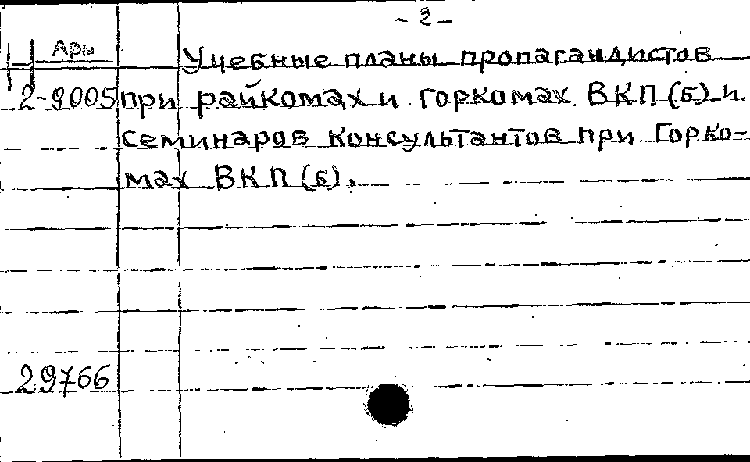 - 2 -
Н Ары
Учебные планы пропагандистов
2-9005 при райкомах и горкомах ВКП(б) и
семинаров консультантов при Горко-
мах ВКП(б).
29766